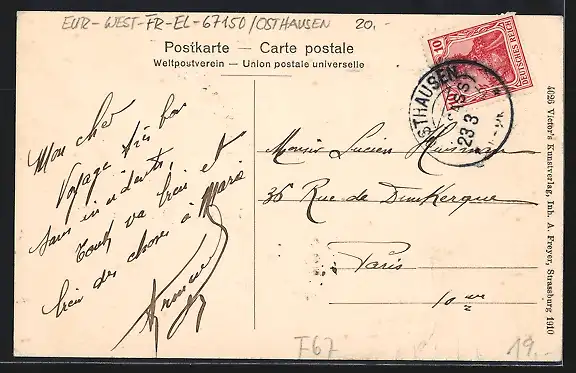 EUR-WEST-FR-EL-67150/OSTHAUSEN 20.-
Postkarte — Carte postale
Weltpostverein — Union postale universelle
10 DEUTSCHES REICH 10
OSTHAUSEN
23 3
Mon cher
Voyage très bon
sans incidents,
Tout va bien et
bien des choses à Marie
Monsieur Lucien
36 Rue de Dunkerque
Paris
10 me
4026 Victor's Kunstverlag, Inh. A. Freyer, Strassburg 1910
F67
19.-